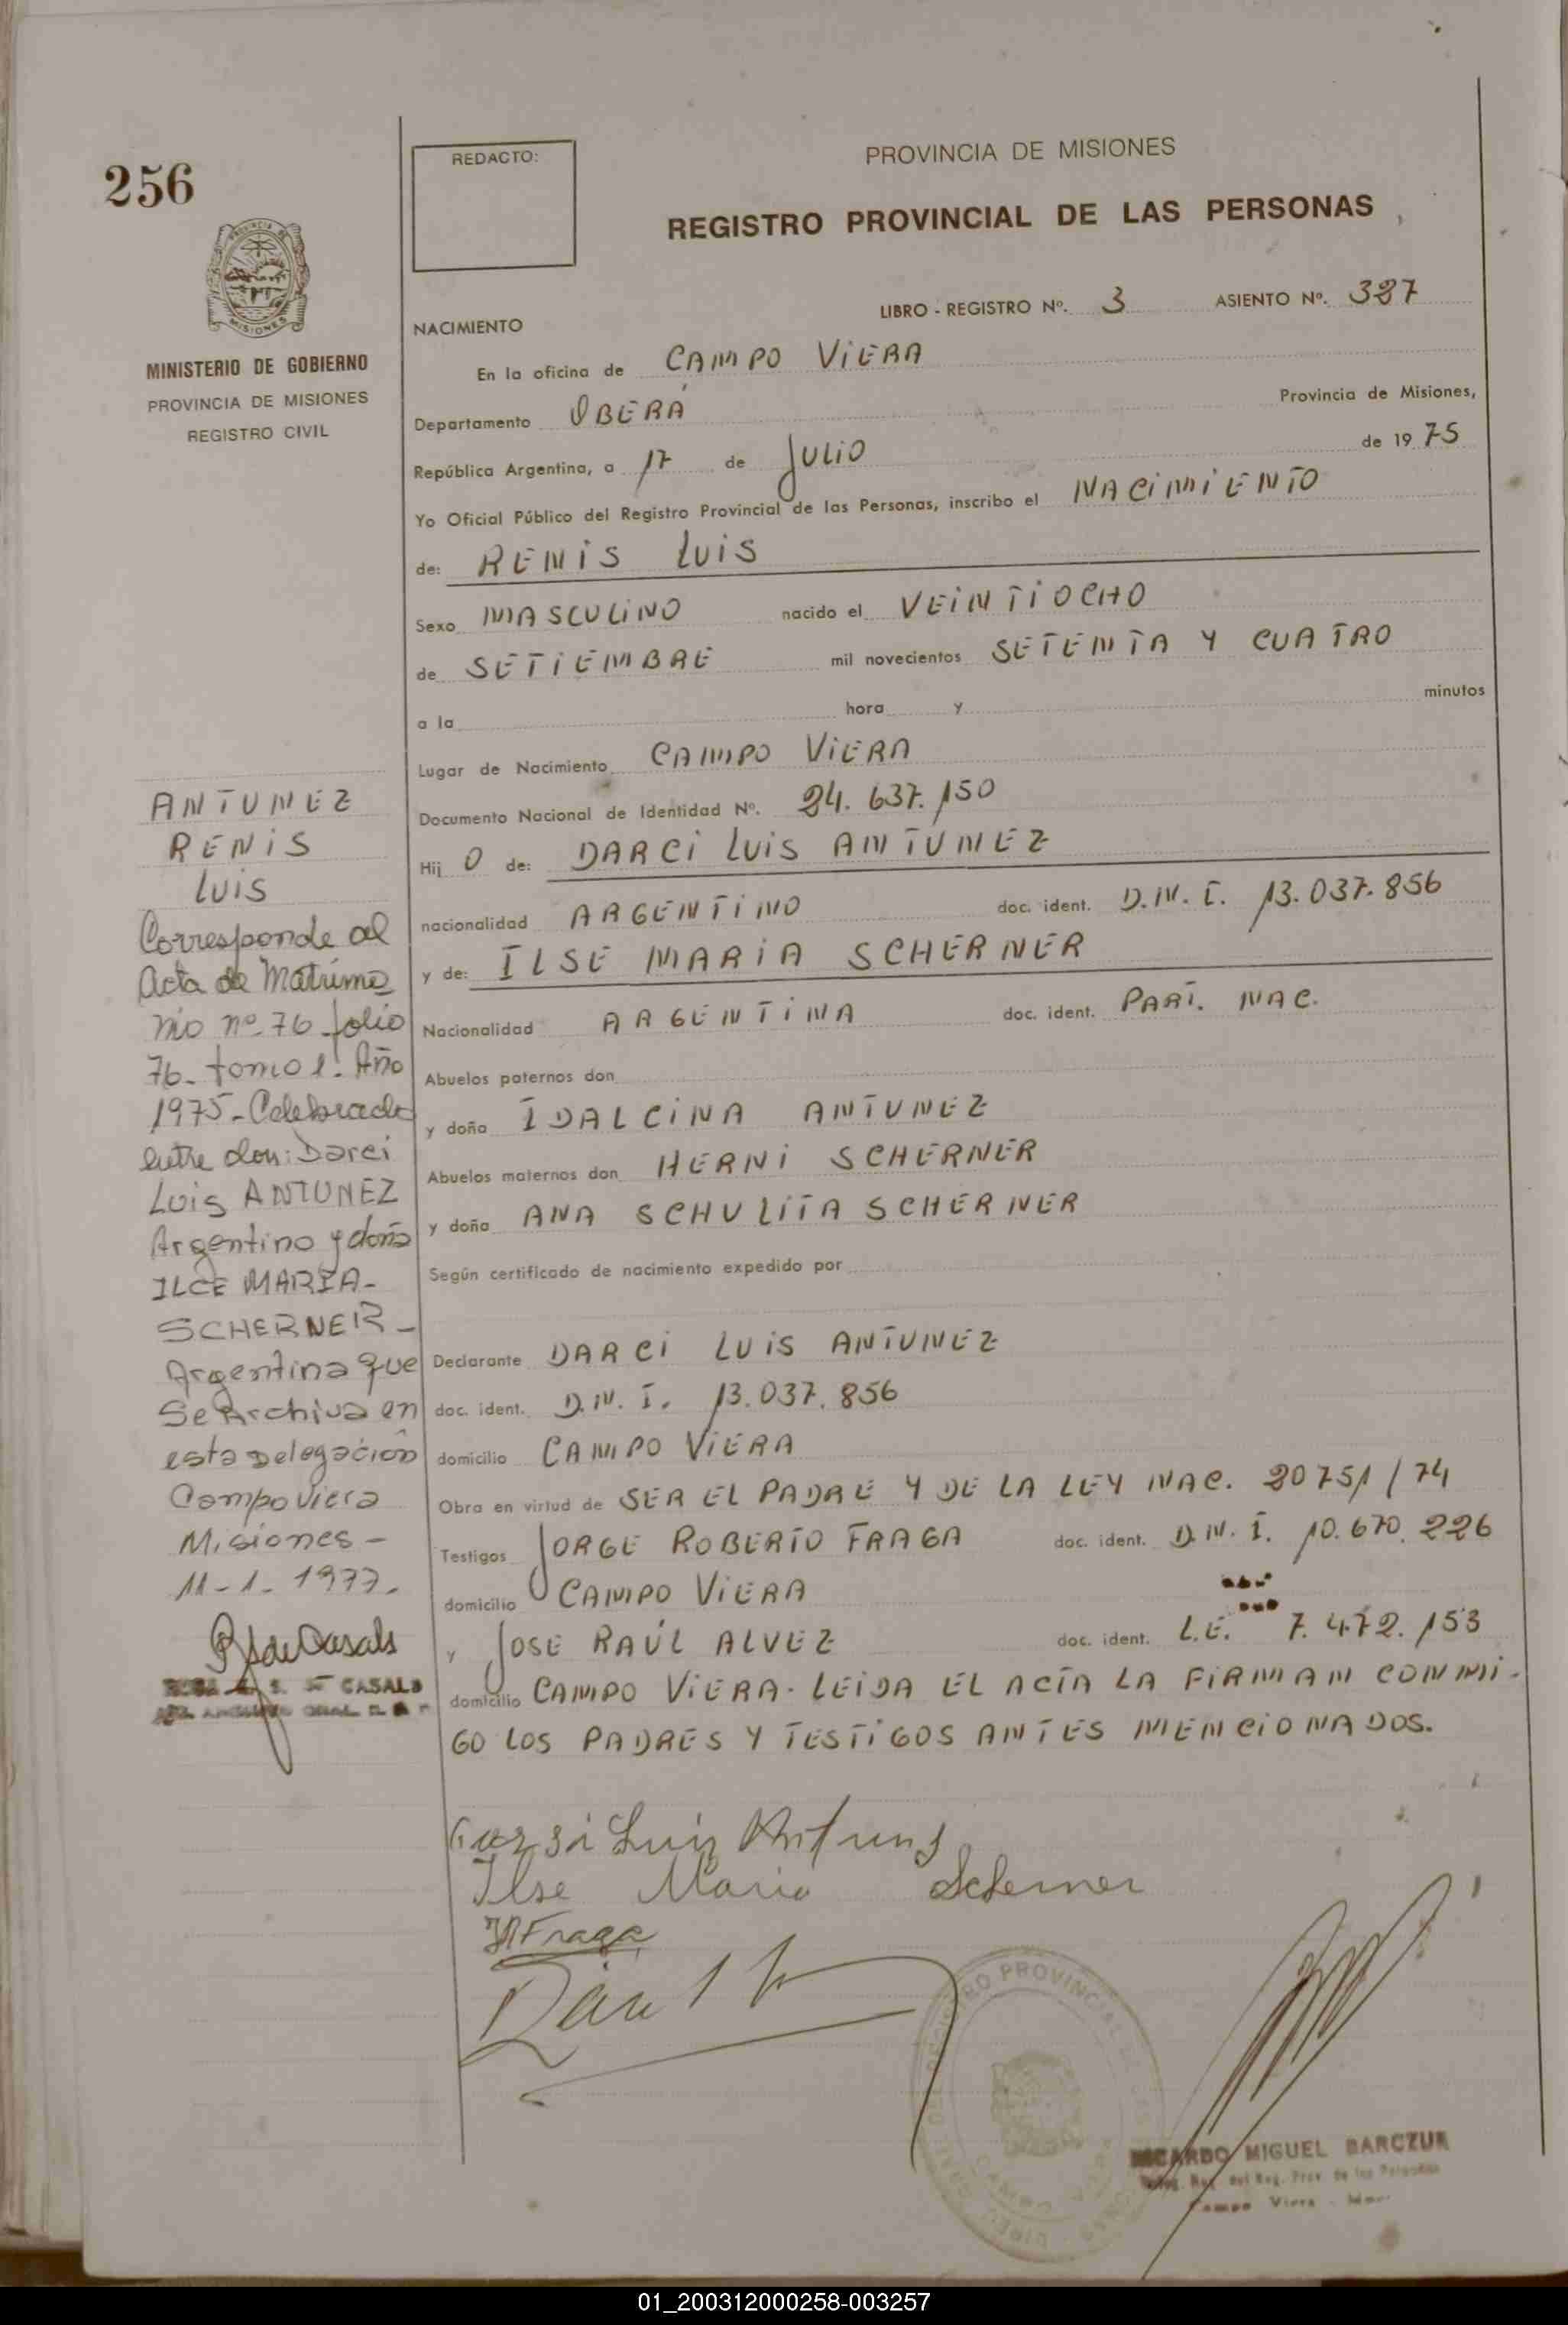 256
REDACTO:
PROVINCIA DE MISIONES
REGISTRO PROVINCIAL DE LAS PERSONAS
MISIONES
MINISTERIO DE GOBIERNO
PROVINCIA DE MISIONES
REGISTRO CIVIL
LIBRO - REGISTRO Nº. 3 ASIENTO Nº. 327
NACIMIENTO
En la oficina de CAMPO VIERA
Departamento OBERÁ Provincia de Misiones,
República Argentina, a 17 de JULIO de 1975
Yo Oficial Público del Registro Provincial de las Personas, inscribo el NACIMIENTO
de: RENIS LUIS
Sexo MASCULINO nacido el VEINTIOCHO
de SETIEMBRE mil novecientos SETENTA Y CUATRO
a la hora y minutos
Lugar de Nacimiento CAMPO VIERA
Documento Nacional de Identidad Nº. 24.637.150
Hij O de: DARCI LUIS ANTUNEZ
nacionalidad ARGENTINO doc. ident. D.N.I. 13.037.856
y de: ILSE MARIA SCHERNER
Nacionalidad ARGENTINA doc. ident. PART. NAC.
Abuelos paternos don
y doña IDALCINA ANTUNEZ
Abuelos maternos don HERNI SCHERNER
y doña ANA SCHULITA SCHERNER
Según certificado de nacimiento expedido por
Declarante DARCI LUIS ANTUNEZ
doc. ident. D.N.I. 13.037.856
domicilio CAMPO VIERA
Obra en virtud de SER EL PADRE Y DE LA LEY NAC. 20751/74
Testigos JORGE ROBERTO FRAGA doc. ident. D.N.I. 10.670.226
domicilio CAMPO VIERA
y JOSE RAÚL ALVEZ doc. ident. L.E. 7.472.153
domicilio CAMPO VIERA. LEIDA EL ACTA LA FIRMAN CONMI-
GO LOS PADRES Y TESTIGOS ANTES MENCIONADOS.
ANTUNEZ
RENIS
LUIS
Corresponde al
Acta de Matrimo
nio nº 76 folio
76- tomo 1º Año
1975- Celebrado
entre don: Darci
Luis ANTUNEZ
Argentino y doña
ILCE MARIA-
SCHERNER-
Argentina que
Se Archiva en
esta Delegación
Campo Viera
Misiones-
11-1-1977.
CASALS
Luiz
Ilse Maria Scherner
Fraga
REGISTRO PROVINCIAL
RICARDO MIGUEL BARCZUK
Campo Viera
01_200312000258-003257